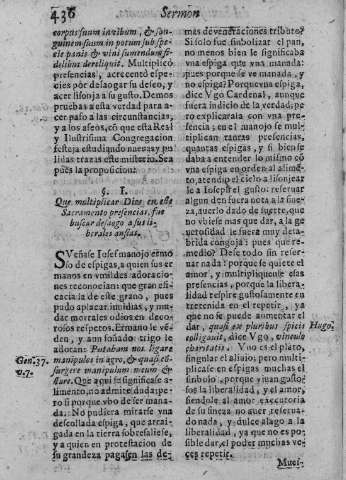 436
Sermon
corpus suum in cibum, & san-
guinem suum in potum sub spe-
cie panis et vini sumendum fi-
delibus dereliquit. Multiplicó
presencias, acrecentó especi-
es por desaogar su deseo, y
acer lisonja a su gusto. Demos
pruebas a esta verdad para a-
cer paso a las circunstancias,
y a los afetos, cõ que esta Real
y Ilustrisima Congregacion
festeja estudiando nuevas y pu-
lidas trazas este misterio. Sea
pues la proposicion:
§. I.
Que multiplicar Dios en este
Sacramento presencias, fue
buscar desaogo a sus li-
berales ansias.
SVeñase Iosef manojo ermo
so de espigas, a quien sus er
manos en vmildes adoracio
nes reconocian: que gran efi-
cacia la de este grano, pues
pudo aplacar invidias, y mu-
dar mortales odios en deco-
rosos respetos. Ermano le vé-
den, y aun soñado trigo le
adoran: Putabam nos ligare
Gen. 37.
manipulos in agro, & quasi cõ-
v. 7.
surgere manipulum meum &
stare. Que aqui se significase a-
limento, no admite duda; pe-
ro si porque vbo de ser mana-
da. No pudiera mirarse vna
descollada espiga, que arrai-
gada en la tierra sobresaliese,
y a quien en protestacion de
su grandeza pagasen las de-
mas de veneraciones tributo?
Si solo fue simbolizar el pan,
no menos bien le significaba
vna espiga que vna manada:
pues porque se ve manada, y
no espiga? Porque vna espiga,
dice Vgo Cardenal, aunque
fuera indicio de la verdad; pe
ro explicarala con vna pre-
sencia; en el manojo se mul-
tiplican tantas presencias,
quantas espigas, y si bien se
daba a entender lo mismo cõ
vna espiga en orden al alimẽ
to, atendio el cielo a lisonjear
le a Iosef su el gusto: reservar
algun den fuera nota a la fi-
neza, averlo dado de suerte, que
no vbiese mas que dar, a la ge
nerosidad le fuera muy deta-
brida congoja: pues que re-
medio? Dese todo sin reser-
uar nada: porque se quiete el
amor, y multipliquense esas
presencias, porque la libera-
lidad respire gustosamente en
teniendo en el repetir, ya
que no se puede aumentar el
dar, quasi ex pluribus spicis
Hugo,
colligauit, dice Vgo, vinculo
charitatis. Vno es el plato,
singular el aliuio; pero multi-
plicase en espigas muchas el
simbolo, porque ya an gustose
fue la liberalidad, y el amor,
siendole al amor executoria
de su fineza no auer reserua-
do nada, y dulce alago a la
liberalidad, ya que no es po-
sible dar, el poder muchas ve-
ces repetir.
Muer-